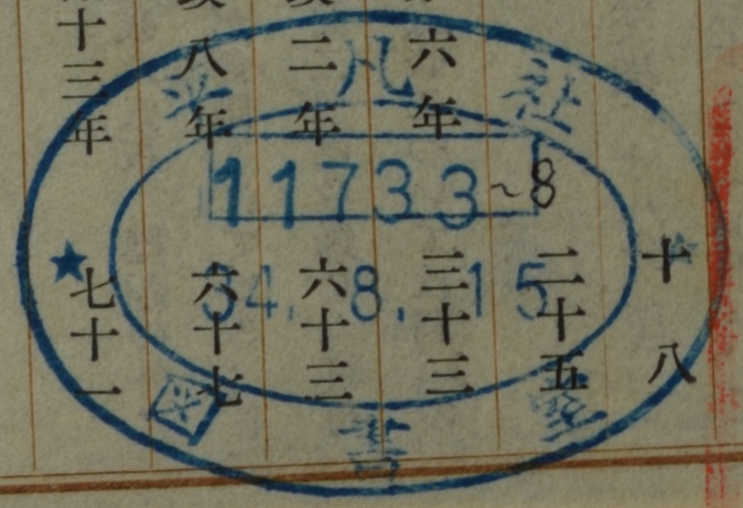 十八
二十五
六年 三十三
二年 六十三
八年 六十七
十三年 七十一
平凡社
11733~8
34. 8. 15
図書室